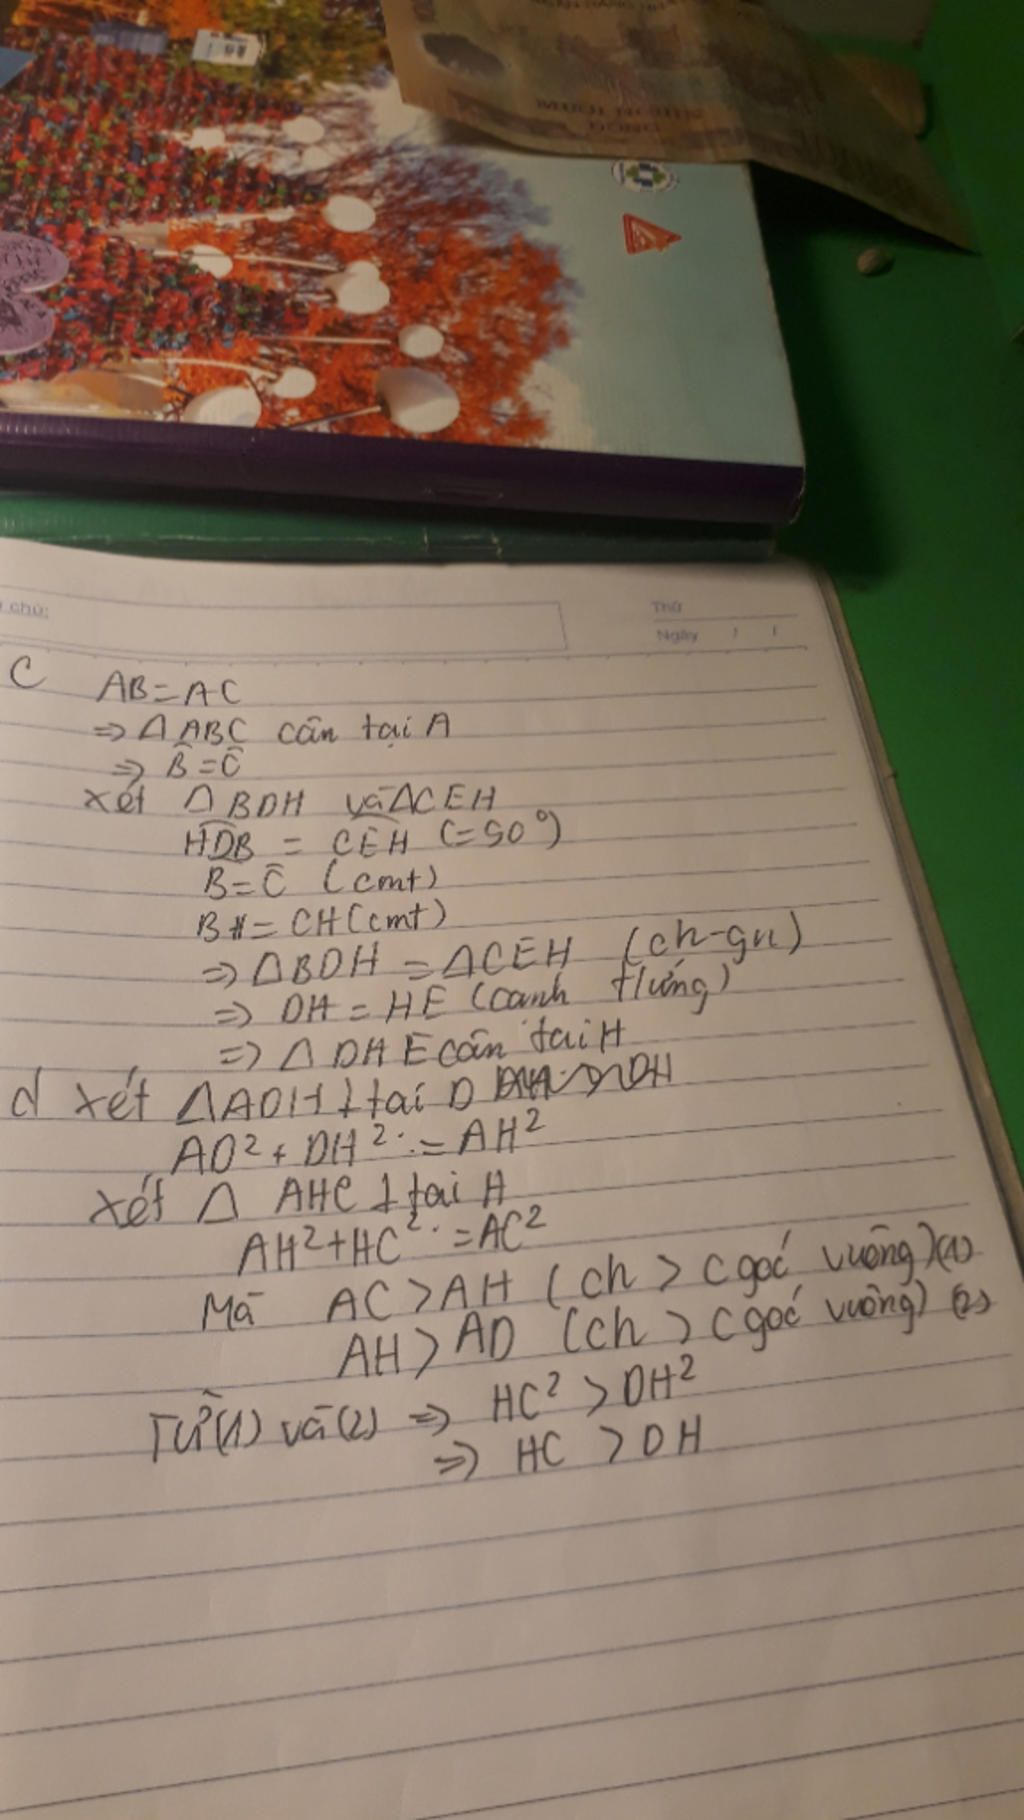 MƯỜI NGHÌN
ĐỒNG
chú:
Thứ
Ngày / /
C AB=AC
=> Δ ABC cân tại A
=> B̂ = Ĉ
Xét Δ BDH và ΔCEH
HDB = CEH (=90°)
B = Ĉ (cmt)
BH = CH (cmt)
=> ΔBDH = ΔCEH (ch-gn)
=> DH = HE (cạnh tứng)
=> Δ DHE cân tại H
d Xét ΔADH ⊥ tại D
AD² + DH² = AH²
Xét Δ AHC ⊥ tại H
AH² + HC² = AC²
Mà AC > AH (ch > cgoc vuông) (1)
AH > AD (ch > cgoc vuông) (2)
Từ (1) và (2) => HC² > DH²
=> HC > DH